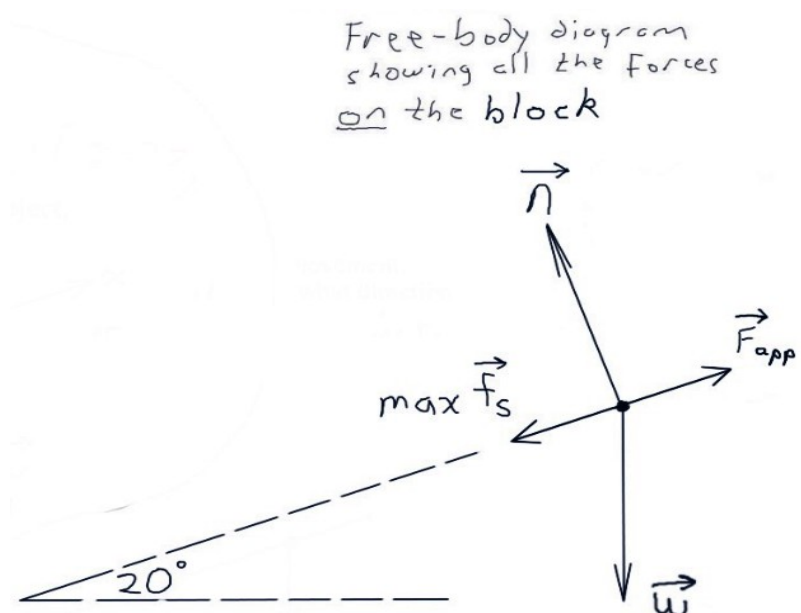 Free-body diagram
showing all the forces
on the block
n
F app
max fs
20°
w